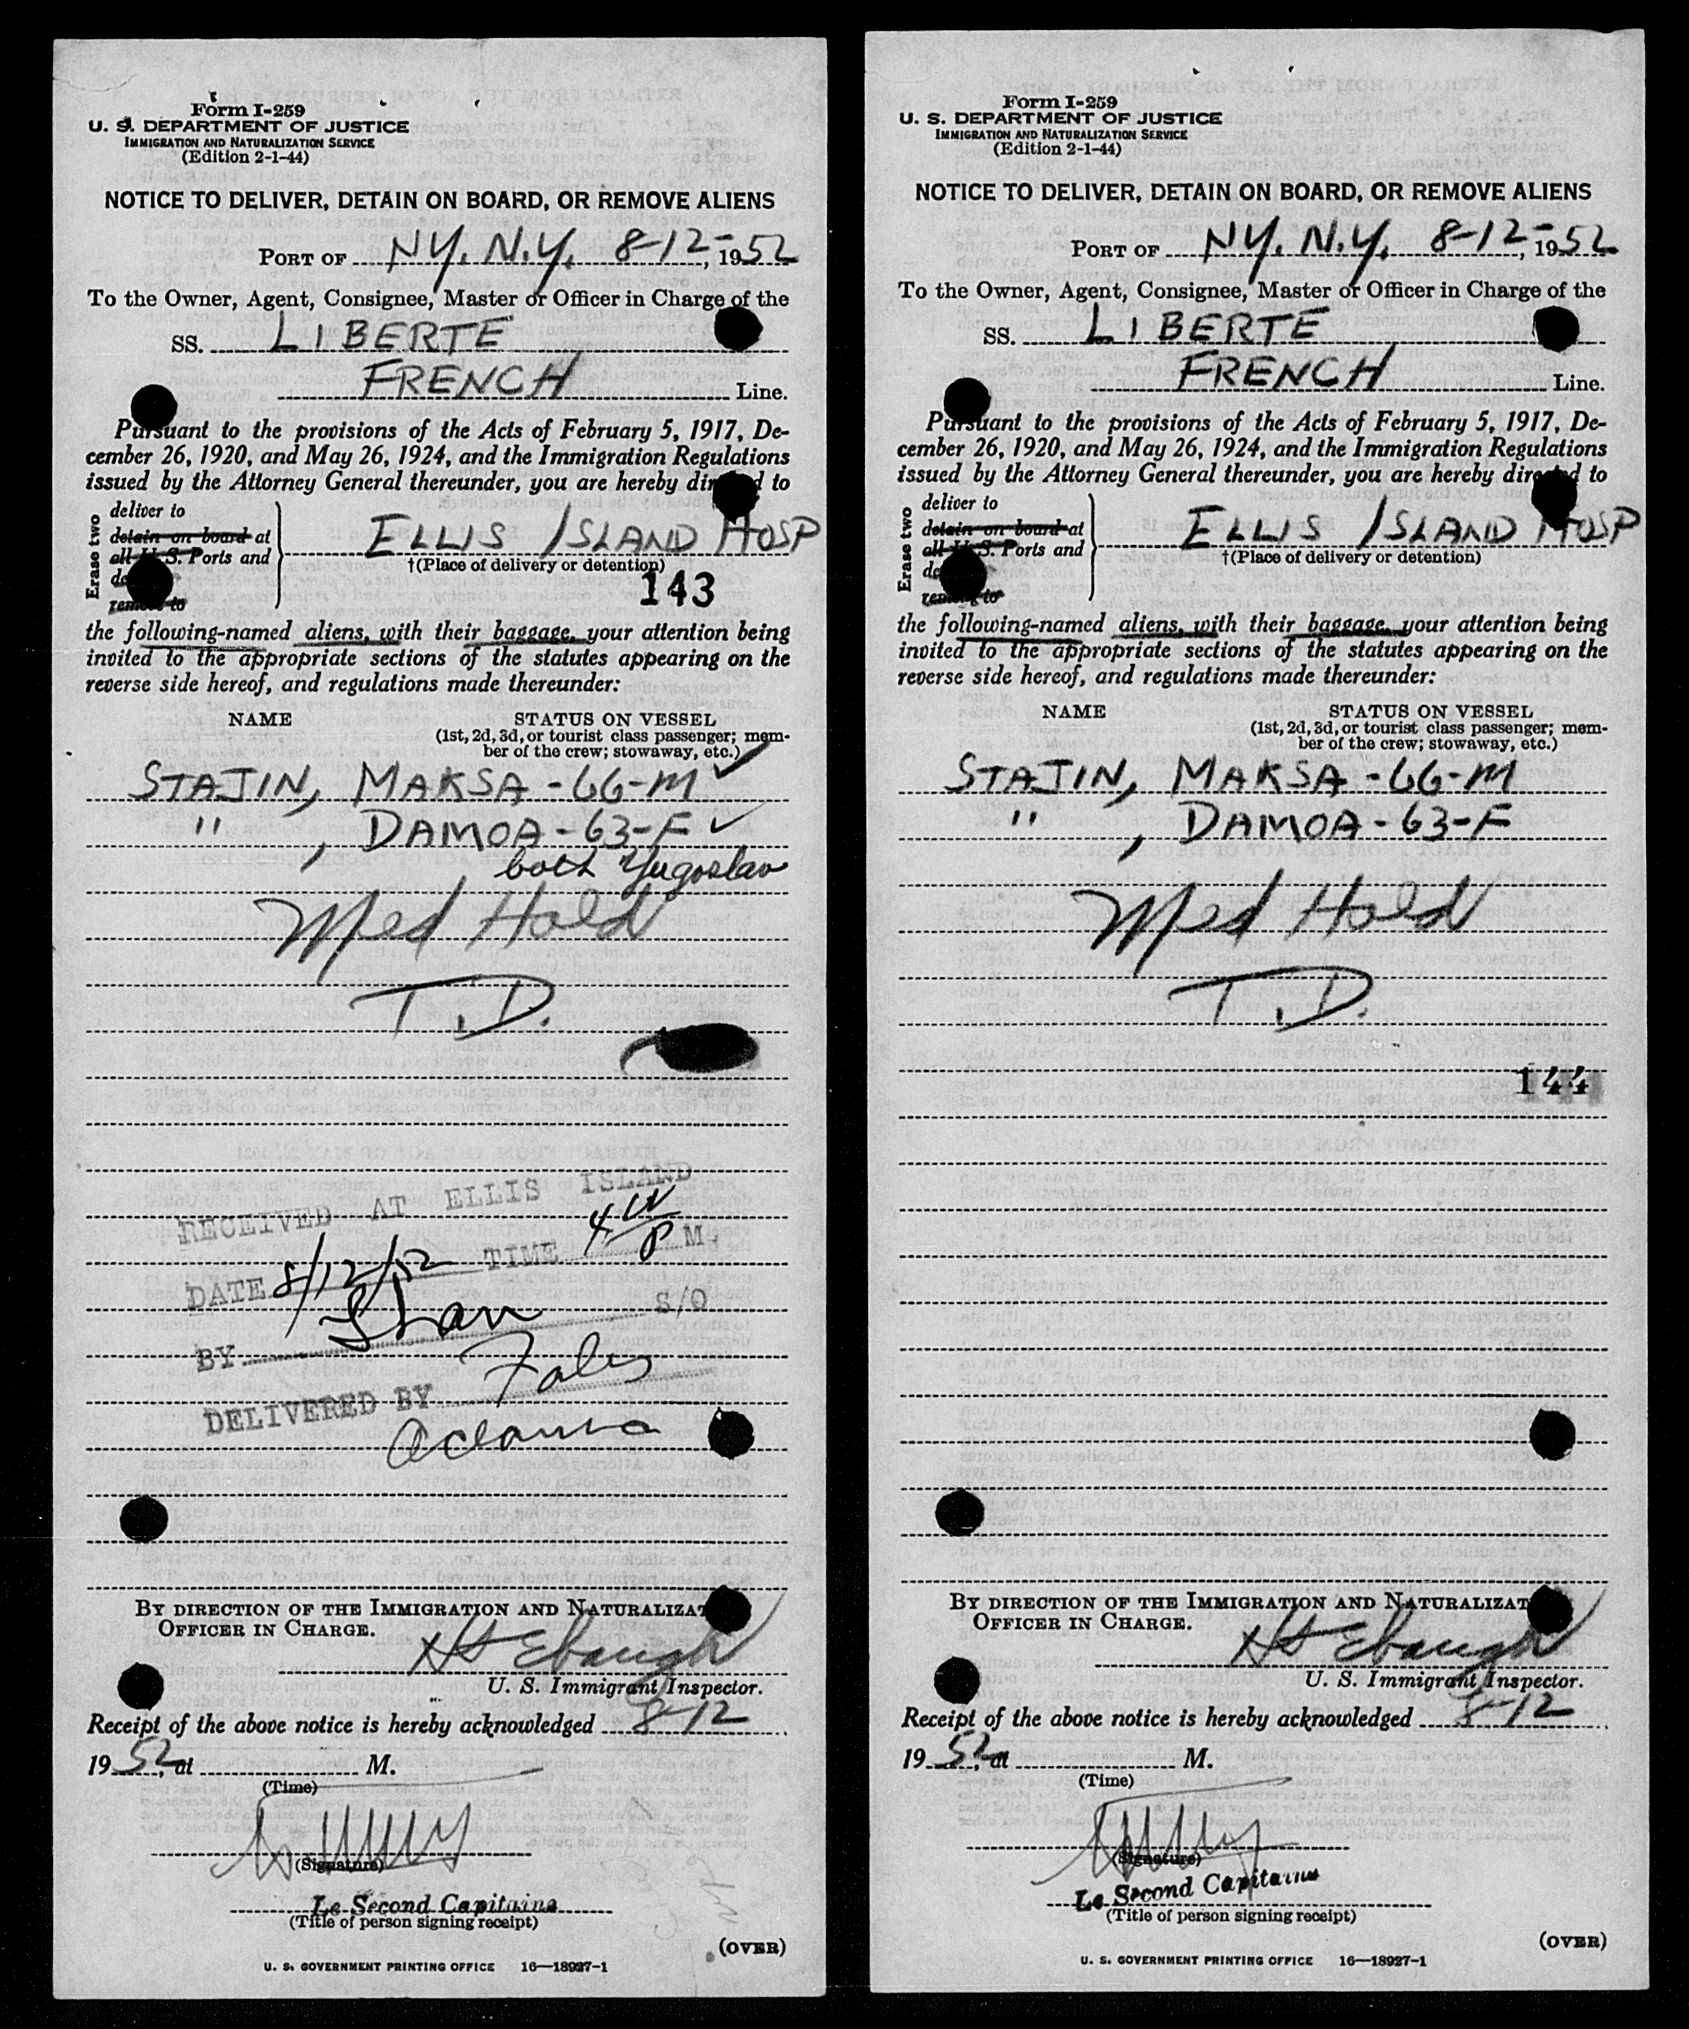 Form I-259
U. S. DEPARTMENT OF JUSTICE
IMMIGRATION AND NATURALIZATION SERVICE
(Edition 2-1-44)
NOTICE TO DELIVER, DETAIN ON BOARD, OR REMOVE ALIENS
PORT OF NY. N.Y. 8-12-, 1952
To the Owner, Agent, Consignee, Master or Officer in Charge of the
SS. LIBERTE
FRENCH Line.
Pursuant to the provisions of the Acts of February 5, 1917, De-
cember 26, 1920, and May 26, 1924, and the Immigration Regulations
issued by the Attorney General thereunder, you are hereby directed to
Erase two
deliver to
detain on board at
all U.S. Ports and
remove to
ELLIS ISLAND HOSP
†(Place of delivery or detention)
143
the following-named aliens, with their baggage, your attention being
invited to the appropriate sections of the statutes appearing on the
reverse side hereof, and regulations made thereunder:
NAME STATUS ON VESSEL
(1st, 2d, 3d, or tourist class passenger; mem-
ber of the crew; stowaway, etc.)
STAJIN, MAKSA - 66-M ✓
" , DAMOA - 63-F ✓
both Yugoslav
Med Hold
T.D.
RECEIVED AT ELLIS ISLAND
DATE 8/12/52 TIME 4 P M.
BY S/O
DELIVERED BY
BY DIRECTION OF THE IMMIGRATION AND NATURALIZAT
OFFICER IN CHARGE.
Ebaugh
U. S. Immigrant Inspector.
Receipt of the above notice is hereby acknowledged 8-12
1952, at M.
(Time)
(Signature)
Le Second Capitaine
(Title of person signing receipt)
(OVER)
U. S. GOVERNMENT PRINTING OFFICE 16—18927-1
Form I-259
U. S. DEPARTMENT OF JUSTICE
IMMIGRATION AND NATURALIZATION SERVICE
(Edition 2-1-44)
NOTICE TO DELIVER, DETAIN ON BOARD, OR REMOVE ALIENS
PORT OF NY. N.Y. 8-12-, 1952
To the Owner, Agent, Consignee, Master or Officer in Charge of the
SS. LIBERTE
FRENCH Line.
Pursuant to the provisions of the Acts of February 5, 1917, De-
cember 26, 1920, and May 26, 1924, and the Immigration Regulations
issued by the Attorney General thereunder, you are hereby directed to
Erase two
deliver to
detain on board at
all U.S. Ports and
remove to
ELLIS ISLAND HOSP
†(Place of delivery or detention)
the following-named aliens, with their baggage, your attention being
invited to the appropriate sections of the statutes appearing on the
reverse side hereof, and regulations made thereunder:
NAME STATUS ON VESSEL
(1st, 2d, 3d, or tourist class passenger; mem-
ber of the crew; stowaway, etc.)
STAJIN, MAKSA - 66-M
" , DAMOA - 63-F
Med Hold
T.D.
144
BY DIRECTION OF THE IMMIGRATION AND NATURALIZAT
OFFICER IN CHARGE.
Ebaugh
U. S. Immigrant Inspector.
Receipt of the above notice is hereby acknowledged 8-12
1952, at M.
(Time)
(Signature)
Le Second Capitaine
(Title of person signing receipt)
(OVER)
U. S. GOVERNMENT PRINTING OFFICE 16—18927-1